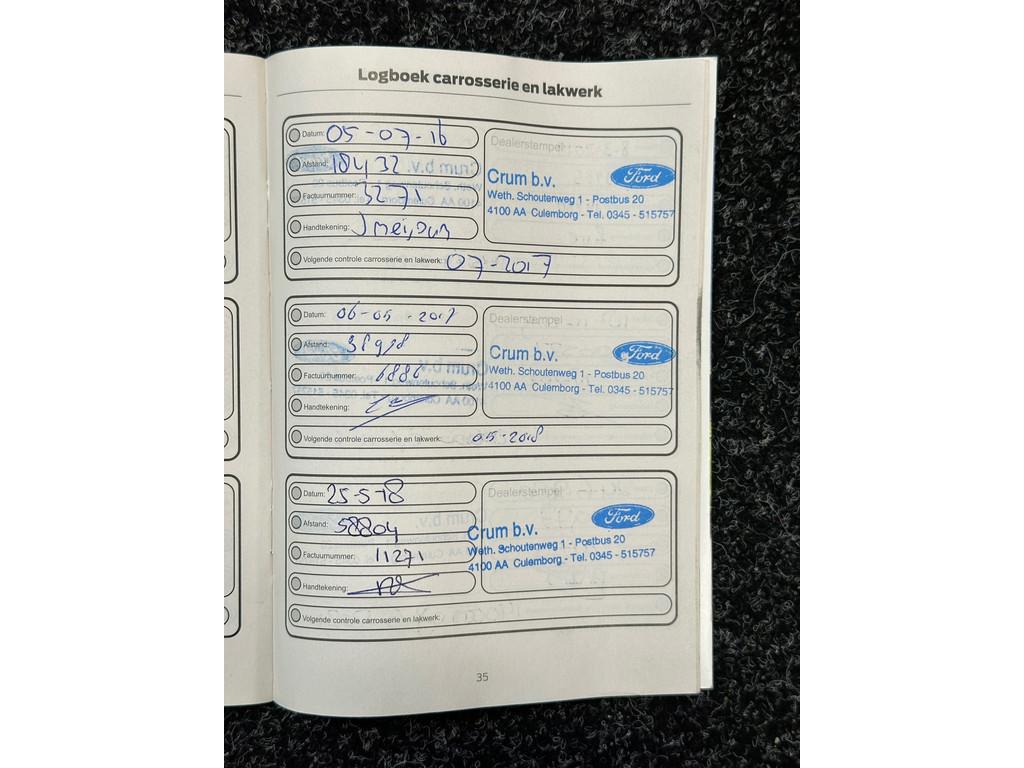 Logboek carrosserie en lakwerk
Datum: 05-07-16
Dealerstempel
Afstand: 18432
Crum b.v. Ford
Factuurnummer: 3271
Weth. Schoutenweg 1 - Postbus 20
4100 AA Culemborg - Tel. 0345 - 515757
Handtekening:
Volgende controle carrosserie en lakwerk: 07-2017
Datum: 06-05-2017
Dealerstempel
Afstand: 38978
Crum b.v. Ford
Factuurnummer: 6886
Weth. Schoutenweg 1 - Postbus 20
4100 AA Culemborg - Tel. 0345 - 515757
Handtekening:
Volgende controle carrosserie en lakwerk: 05-2018
Datum: 25-5-18
Dealerstempel
Afstand: 58804
Crum b.v. Ford
Factuurnummer: 11271
Weth. Schoutenweg 1 - Postbus 20
4100 AA Culemborg - Tel. 0345 - 515757
Handtekening:
Volgende controle carrosserie en lakwerk:
35